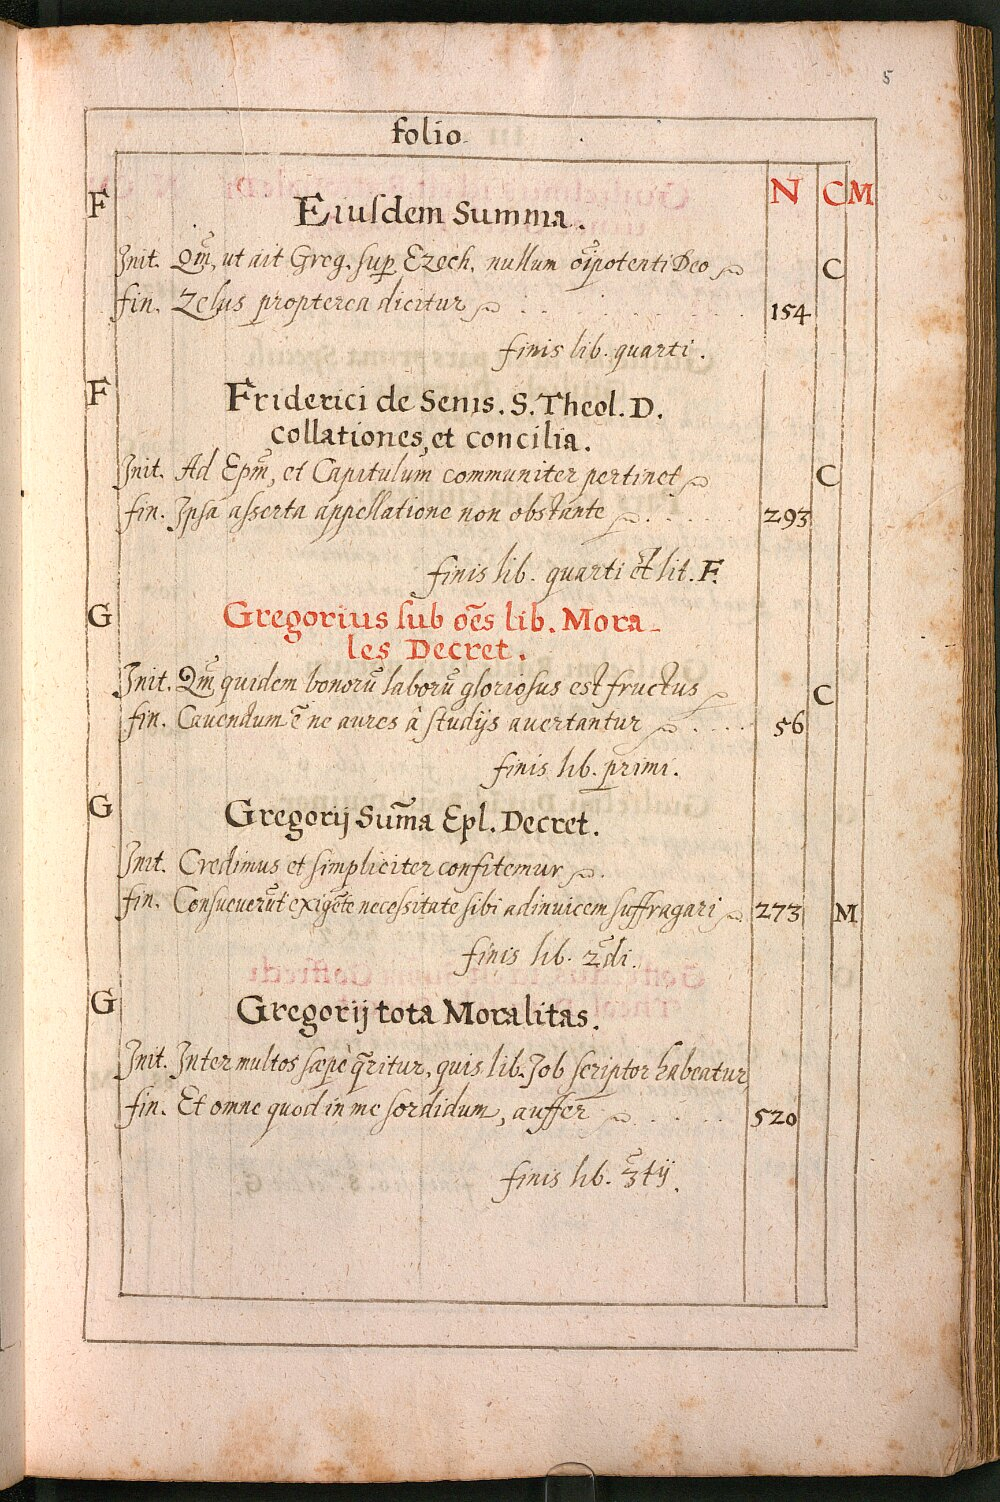 5
folio
N C M
F Eiusdem Summa.
Init. Qm̃, ut ait Greg. sup Ezech. nullum oĩpotenti Deo C
fin. Zelus propterea dicitur 154
finis lib. quarti.
F Friderici de Senis. S. Theol. D.
collationes, et concilia.
Init. Ad Epm̃, et Capitulum communiter pertinet C
fin. Ipsa asserta appellatione non obstante 293
finis lib. quarti et lit. F.
G Gregorius sub oẽs lib. Mora-
les Decret.
Init. Qm̃ quidem bonorũ laborũ gloriosus est fructus C
fin. Cauendum ẽ ne aures à studijs auertantur 56
finis lib. primi.
G Gregorij Sum̃a Epl. Decret.
Init. Credimus et simpliciter confitemur
fin. Consueuerũt exigẽte necessitate sibi adinuicem suffragari 273 M
finis lib. 2d̃i.
G Gregorij tota Moralitas.
Init. Inter multos sæpe q̃ritur, quis lib. Job scriptor habeatur
fin. Et omne quod in me sordidum, auffer 520
finis lib. 3̃tij.